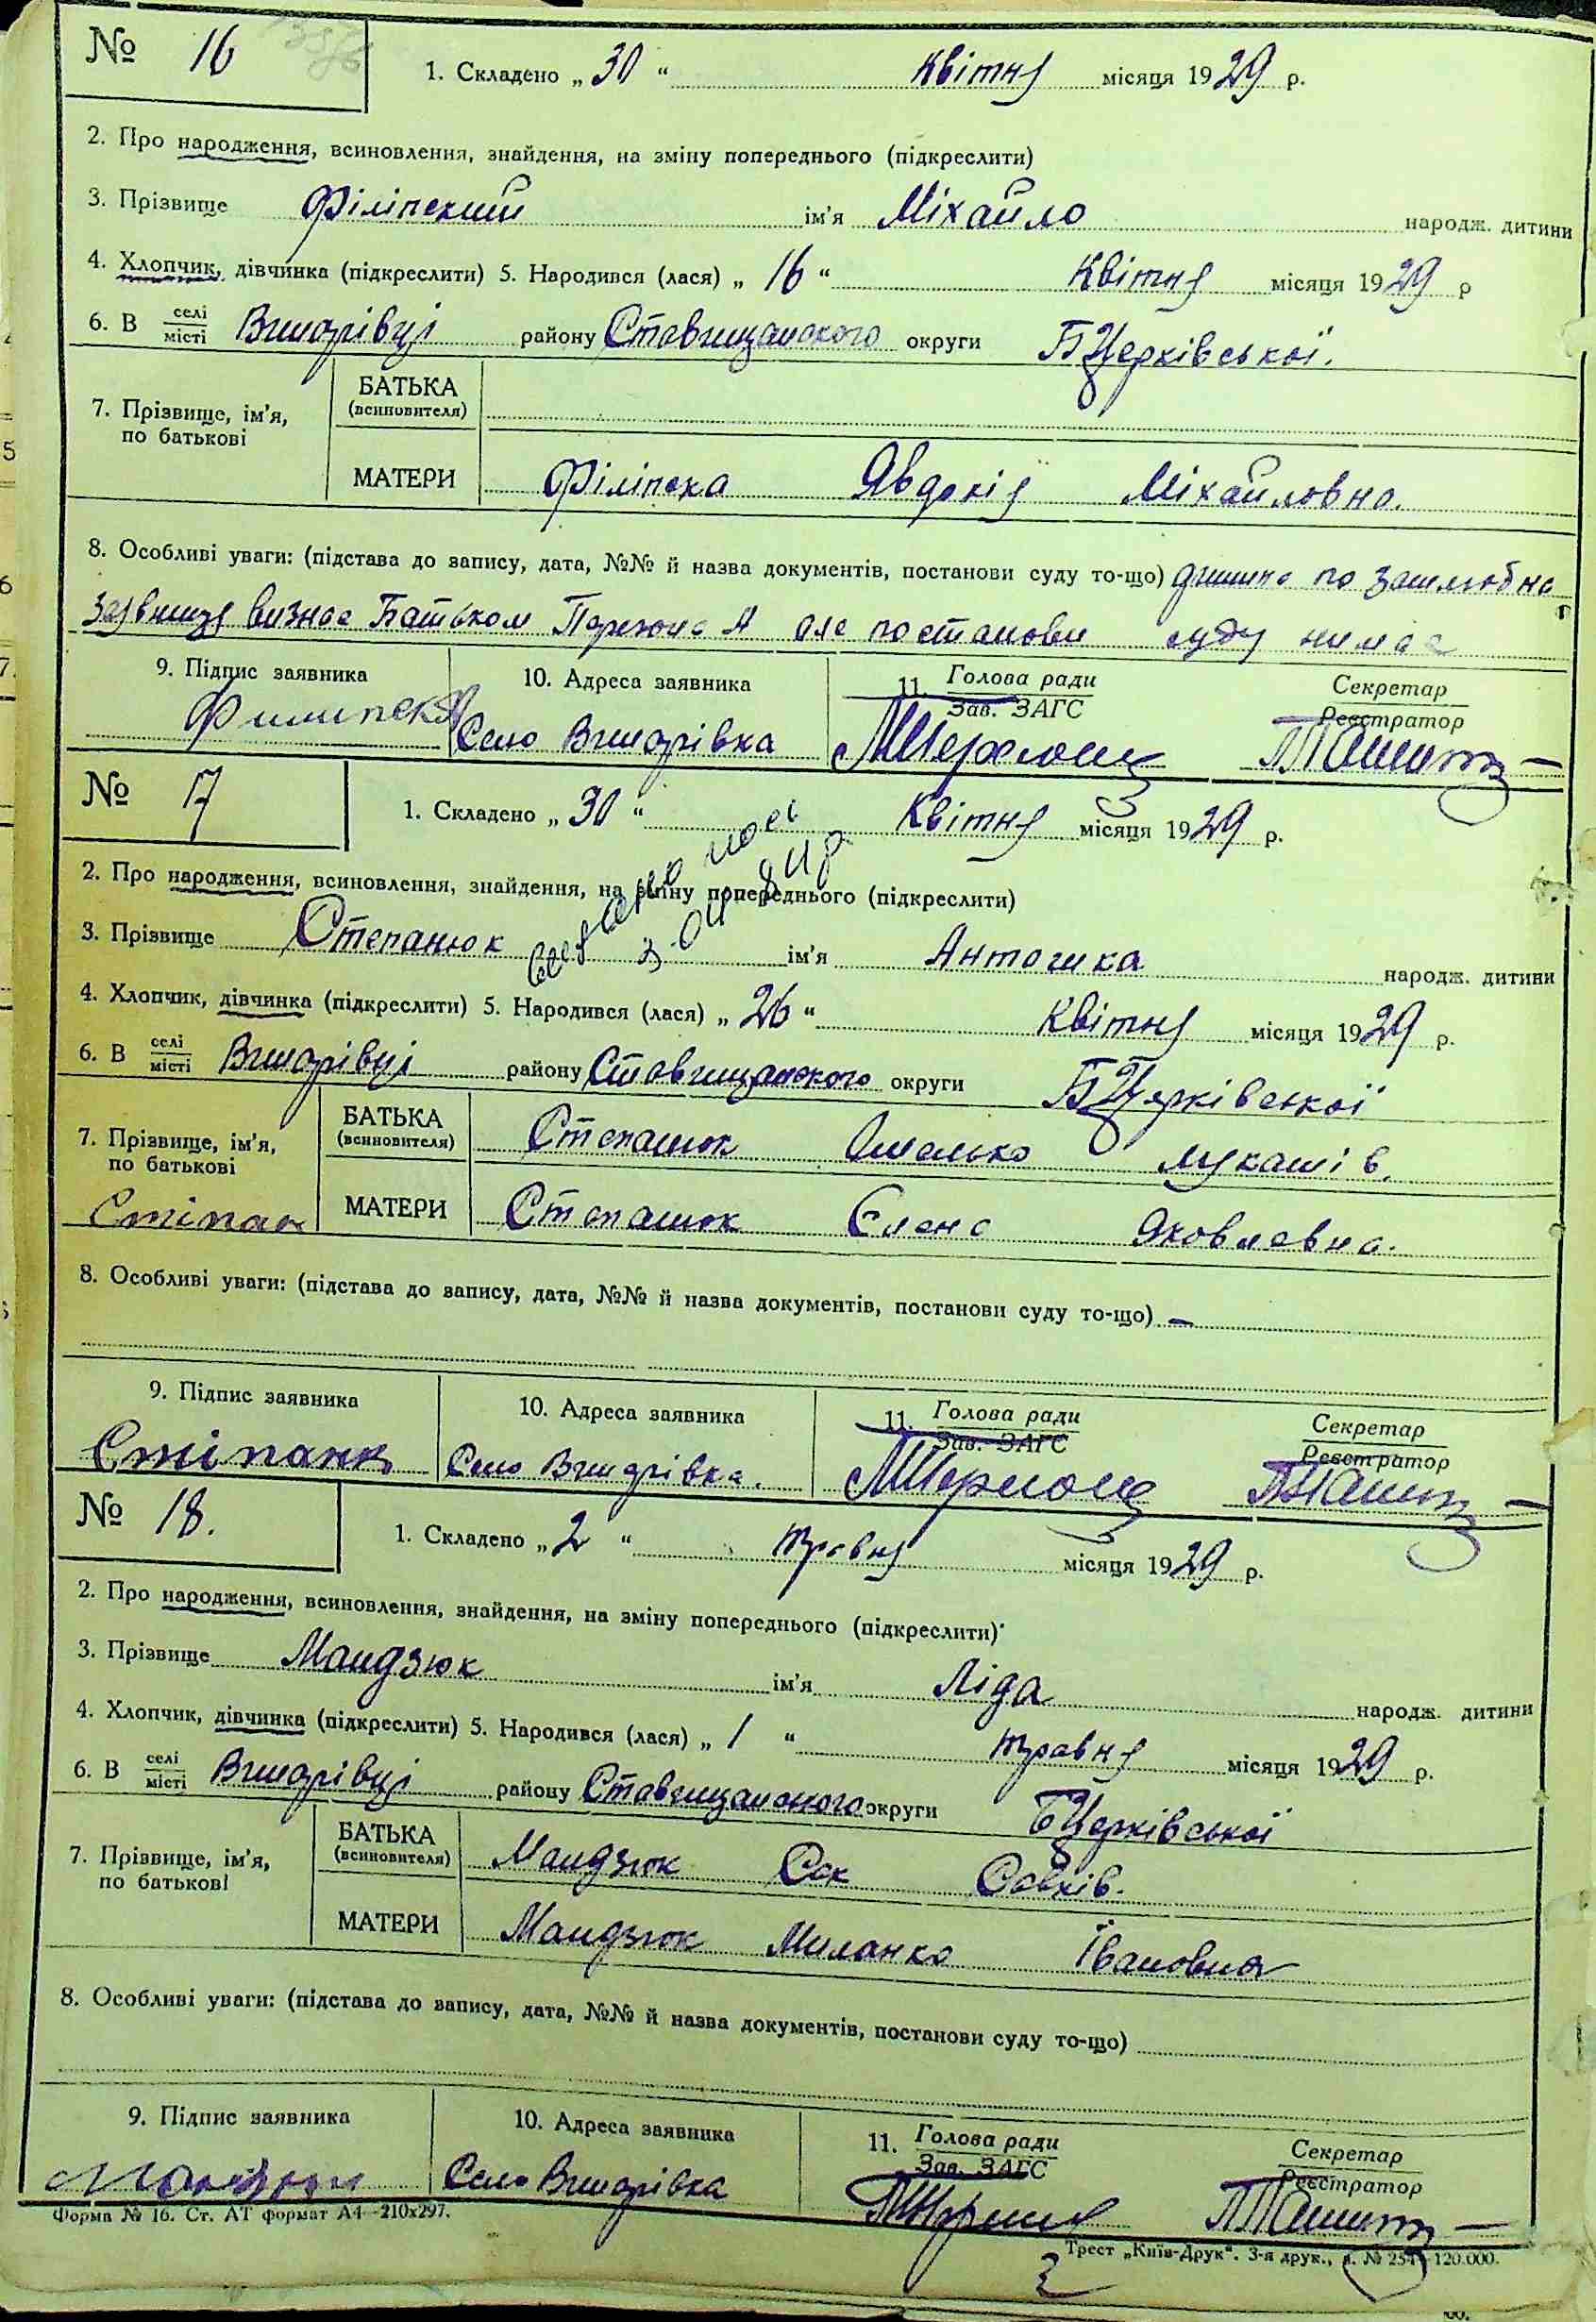 № 16
1. Складено „30“ Квітня місяця 1929 р.
2. Про народження, всиновлення, знайдення, на зміну попереднього (підкреслити)
3. Прізвище Філіпський ім'я Міхайло народж. дитини
4. Хлопчик, дівчинка (підкреслити) 5. Народився (лася) „16“ Квітня місяця 1929 р
6. В селі/місті району Ставищанського округи БЦерківської.
7. Прізвище, ім'я, по батькові
БАТЬКА (всиновителя)
МАТЕРИ Філіпска Явдокія Міхайловна.
8. Особливі уваги: (підстава до запису, дата, №№ й назва документів, постанови суду то-що)
визнає Батьком але постанови суду нимає
9. Підпис заявника 10. Адреса заявника 11. Голова ради Секретар
Зав. ЗАГС Реєстратор
Село
№ 17
1. Складено „30“ Квітня місяця 1929 р.
2. Про народження, всиновлення, знайдення, на зміну попереднього (підкреслити)
3. Прізвище Степанюк ім'я народж. дитини
4. Хлопчик, дівчинка (підкреслити) 5. Народився (лася) „26“ Квітня місяця 1929 р.
6. В селі/місті району Ставищанського округи БЦерківської
7. Прізвище, ім'я, по батькові
БАТЬКА (всиновителя) Степанюк Омелько Лукашів.
МАТЕРИ Степанюк Єлена Яковлевна.
8. Особливі уваги: (підстава до запису, дата, №№ й назва документів, постанови суду то-що) —
9. Підпис заявника 10. Адреса заявника 11. Голова ради Секретар
Зав. ЗАГС Реєстратор
Село
№ 18.
1. Складено „2“ травня місяця 1929 р.
2. Про народження, всиновлення, знайдення, на зміну попереднього (підкреслити)
3. Прізвище Мандзюк ім'я Ліда народж. дитини
4. Хлопчик, дівчинка (підкреслити) 5. Народився (лася) „1“ травня місяця 1929 р.
6. В селі/місті району Ставищанського округи БЦерківської
7. Прізвище, ім'я, по батькові
БАТЬКА (всиновителя) Мандзюк Сак Савків.
МАТЕРИ Мандзюк Миланка Івановна
8. Особливі уваги: (підстава до запису, дата, №№ й назва документів, постанови суду то-що)
9. Підпис заявника 10. Адреса заявника 11. Голова ради Секретар
Зав. ЗАГС Реєстратор
Село
Форма № 16. Ст. АТ формат А4—210x297.
Трест „Київ-Друк“. 3-я друк., 120.000.